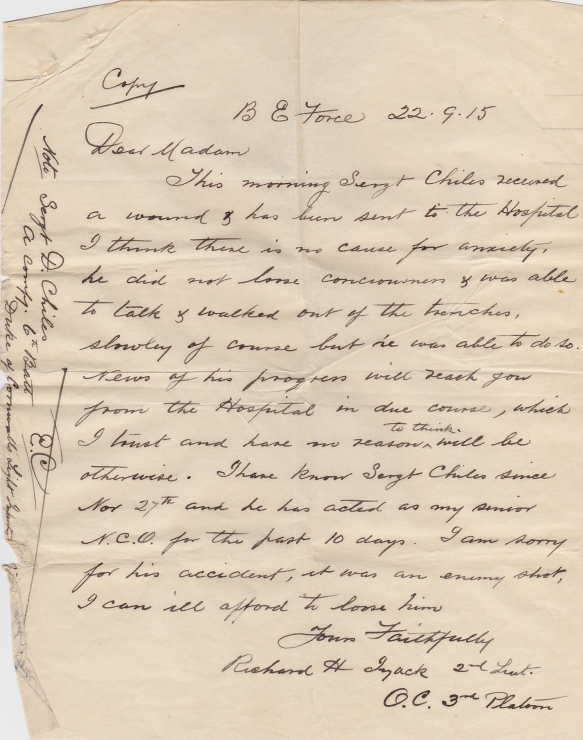 Copy
B E Force 22.9.15
Dear Madam
This morning Sergt Chiles received
a wound & has been sent to the Hospital
I think there is no cause for anxiety,
he did not loose conciousness & was able
to talk & walked out of the trenches,
slowley of course but he was able to do so.
News of his progress will reach you
from the Hospital in due course, which
I trust and have no reason to think will be
otherwise. I have know Sergt Chiles since
Nov 27th and he has acted as my senior
N.C.O. for the past 10 days. I am sorry
for his accident, it was an enemy shot,
I can ill afford to loose him
Yours Faithfully
Richard H 2nd Lieut.
O.C. 3rd Platoon
Note Sergt D. Chiles
A Compy. 6th Batt
Duke of Cornwalls Light
E.C